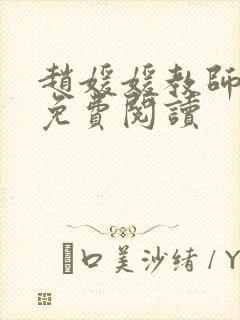 趙媛媛教師
免費閱讀
口美沙绪 / Y